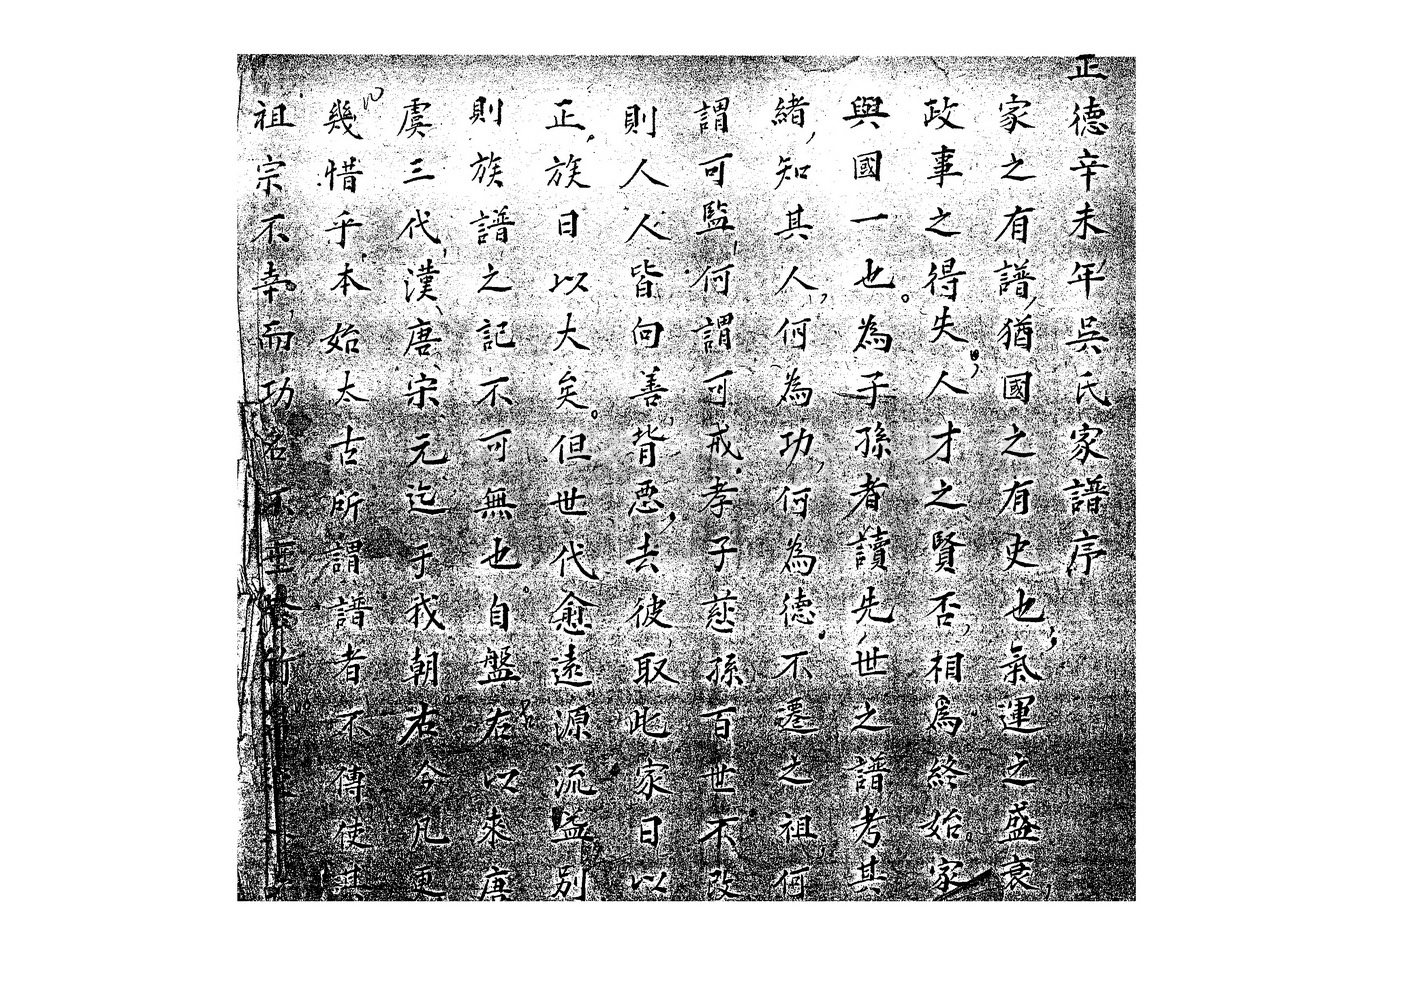 正德辛未年吳氏家譜序
家之有譜猶國之有史也氣運之盛衰
政事之得失人才之賢否相為終始家
與國一也為子孫者讀先世之譜考其
緒知其人何為功何為德不遷之祖何
謂可監何謂可戒孝子慈孫百世不改
則人人皆向善背惡去彼取此家日以
正族日以大矣但世代愈遠源流益別
則族譜之記不可無也自盤古以來唐
虞三代漢唐宋元迄于我朝右今凡更
幾惜乎本始太古所謂譜者不傳使其
祖宗不幸而功名不